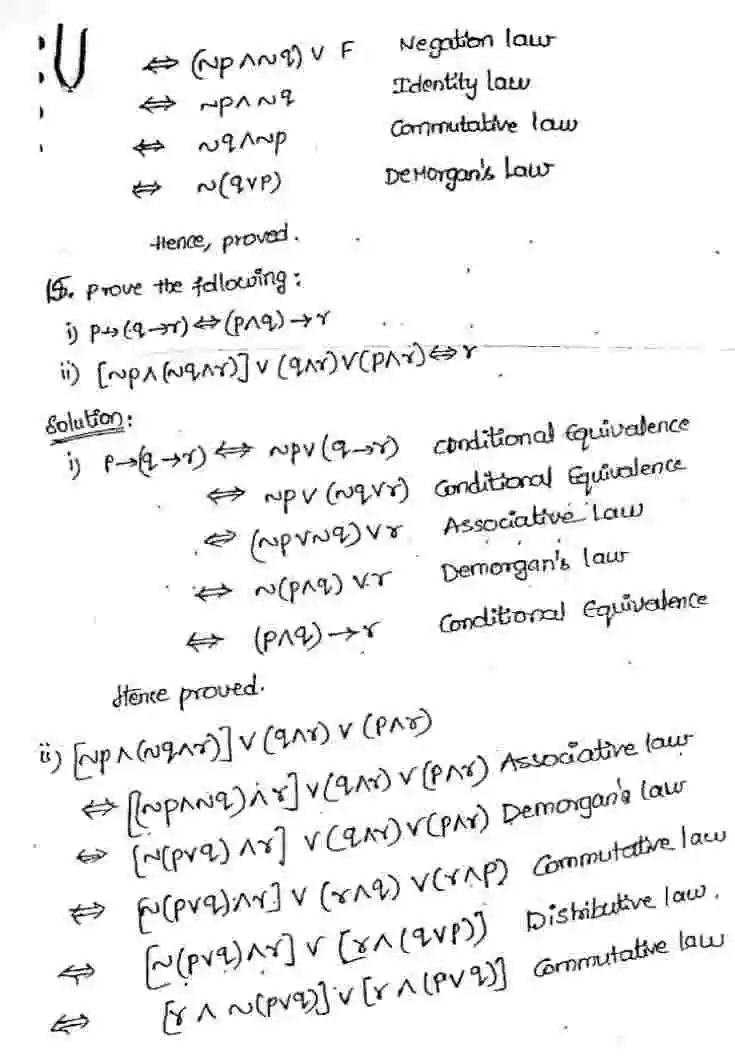 ⇔ (~p∧~q) ∨ F Negation law
⇔ ~p∧~q Identity law
⇔ ~q∧~p Commutative law
⇔ ~(q∨p) DeMorgan's Law
Hence, proved.
15. prove the following:
i) p→(q→r)⇔(p∧q)→r
ii) [~p∧(~q∧r)]∨(q∧r)∨(p∧r)⇔r
Solution:
i) p→(q→r)⇔ ~p∨(q→r) Conditional Equivalence
⇔ ~p∨(~q∨r) Conditional Equivalence
⇔ (~p∨~q)∨r Associative Law
⇔ ~(p∧q)∨r Demorgan's law
⇔ (p∧q)→r Conditional Equivalence
Hence proved.
ii) [~p∧(~q∧r)]∨(q∧r)∨(p∧r)
⇔ [(~p∧~q)∧r]∨(q∧r)∨(p∧r) Associative law
⇔ [~(p∨q)∧r]∨(q∧r)∨(p∧r) Demorgan's law
⇔ [~(p∨q)∧r]∨(r∧q)∨(r∧p) Commutative law
⇔ [~(p∨q)∧r]∨[r∧(q∨p)] Distributive law.
⇔ [r∧~(p∨q)]∨[r∧(p∨q)] Commutative law